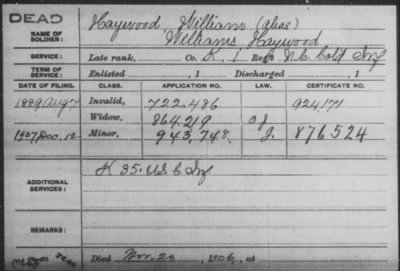 DEAD
Haywood, William (alias)
NAME OF SOLDIER: Williams, Haywood
SERVICE: Late rank, Co. K, 1 Reg't N.C. Cold Inf
TERM OF SERVICE: Enlisted , 1 Discharged , 1
DATE OF FILING. CLASS. APPLICATION NO. LAW. CERTIFICATE NO.
1889 Aug 7 Invalid, 722.486 924171
Widow, 864.219
1907 Dec. 12 Minor, 943,748 J. 876524
ADDITIONAL SERVICES: K 35 U.S.C Inf
REMARKS:
Died Nov. 20, 1906, at